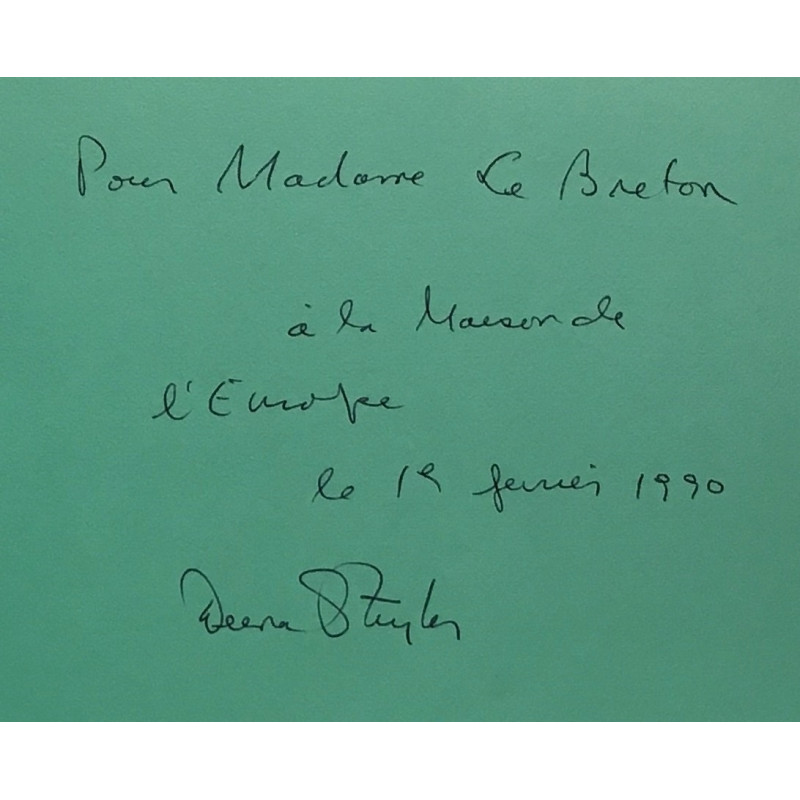 Pour Madame Le Breton
à la Maison de
l'Europe
le 1er fevrier 1990
Deena Stryker